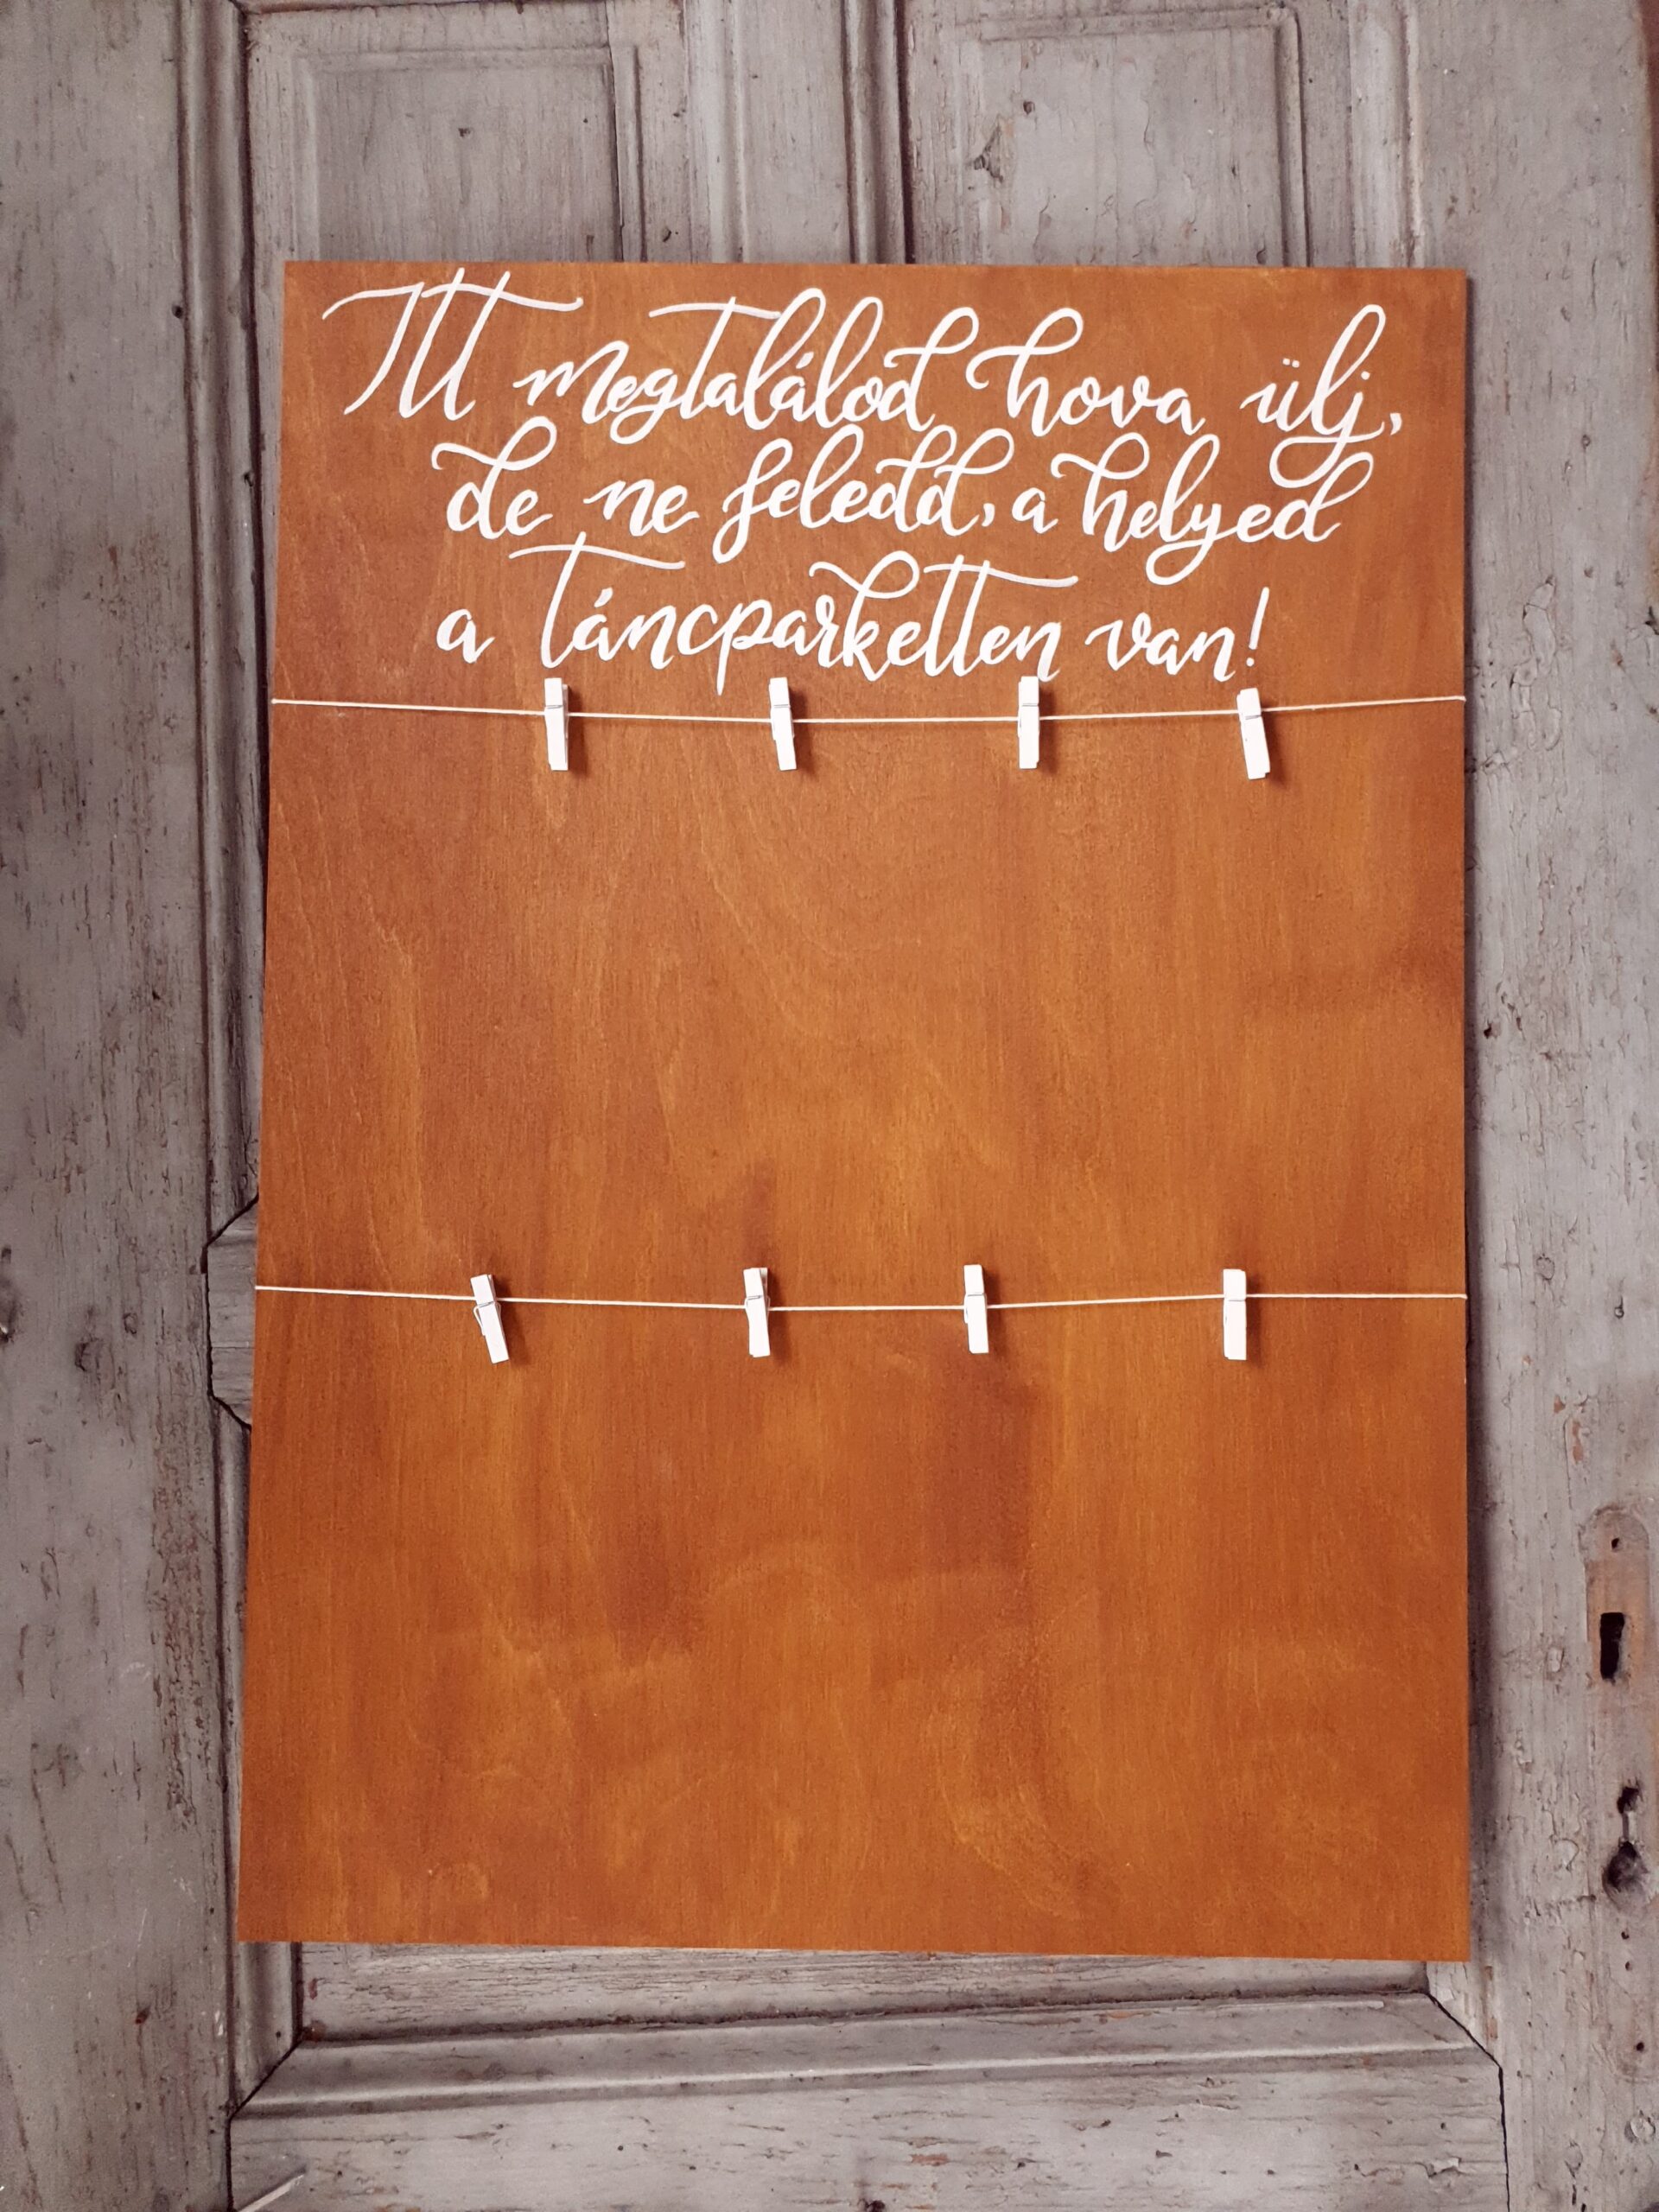 Itt megtalálod hova ülj,
de ne feledd, a helyed
a táncparketten van!